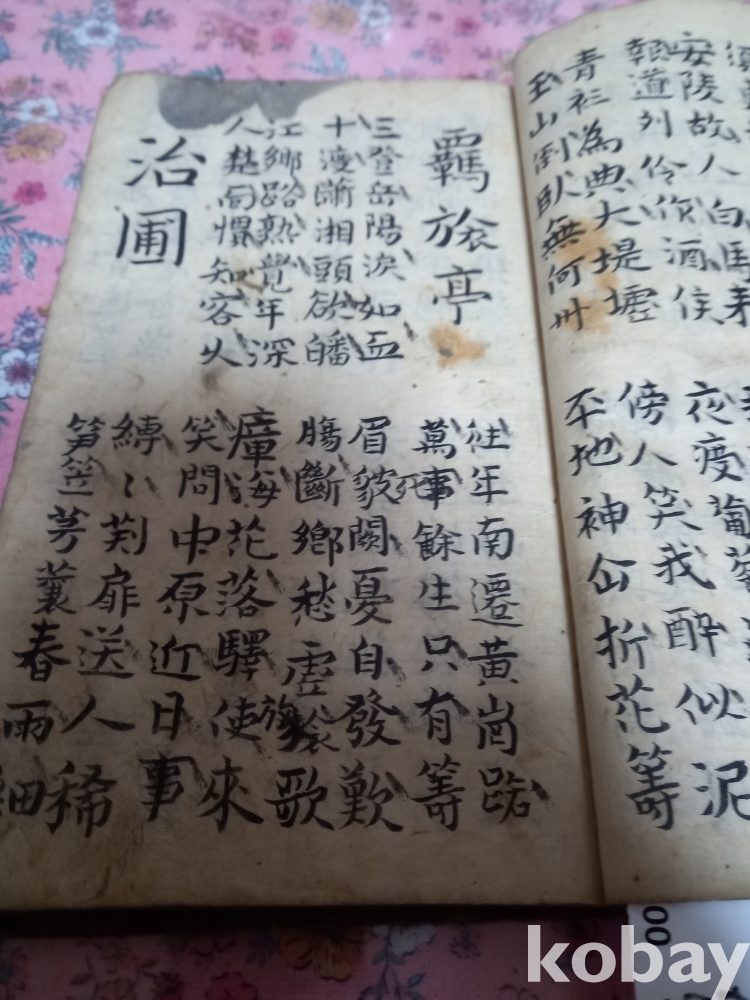 安陵故人白馬耒
報道列伶作酒侯
青衫為典大堤壚
玉山倒臥無何州
傍人笑我醉似泥
平地神仚折花籌
羈旅亭
三登岳陽淚如血
十渡斷湘頭欲皤
江鄉路熟覺年深
人楚向慣知客久
治圃
往年南遷黃崗路
萬事死餘生只有籌
眉皺闕憂自發歎
腸斷鄉愁虛旅歌
瘴海花落驛使來
笑問中原近日事
縛〻荊扉送人稀
笋笠芳蓑春雨細
00
kobay